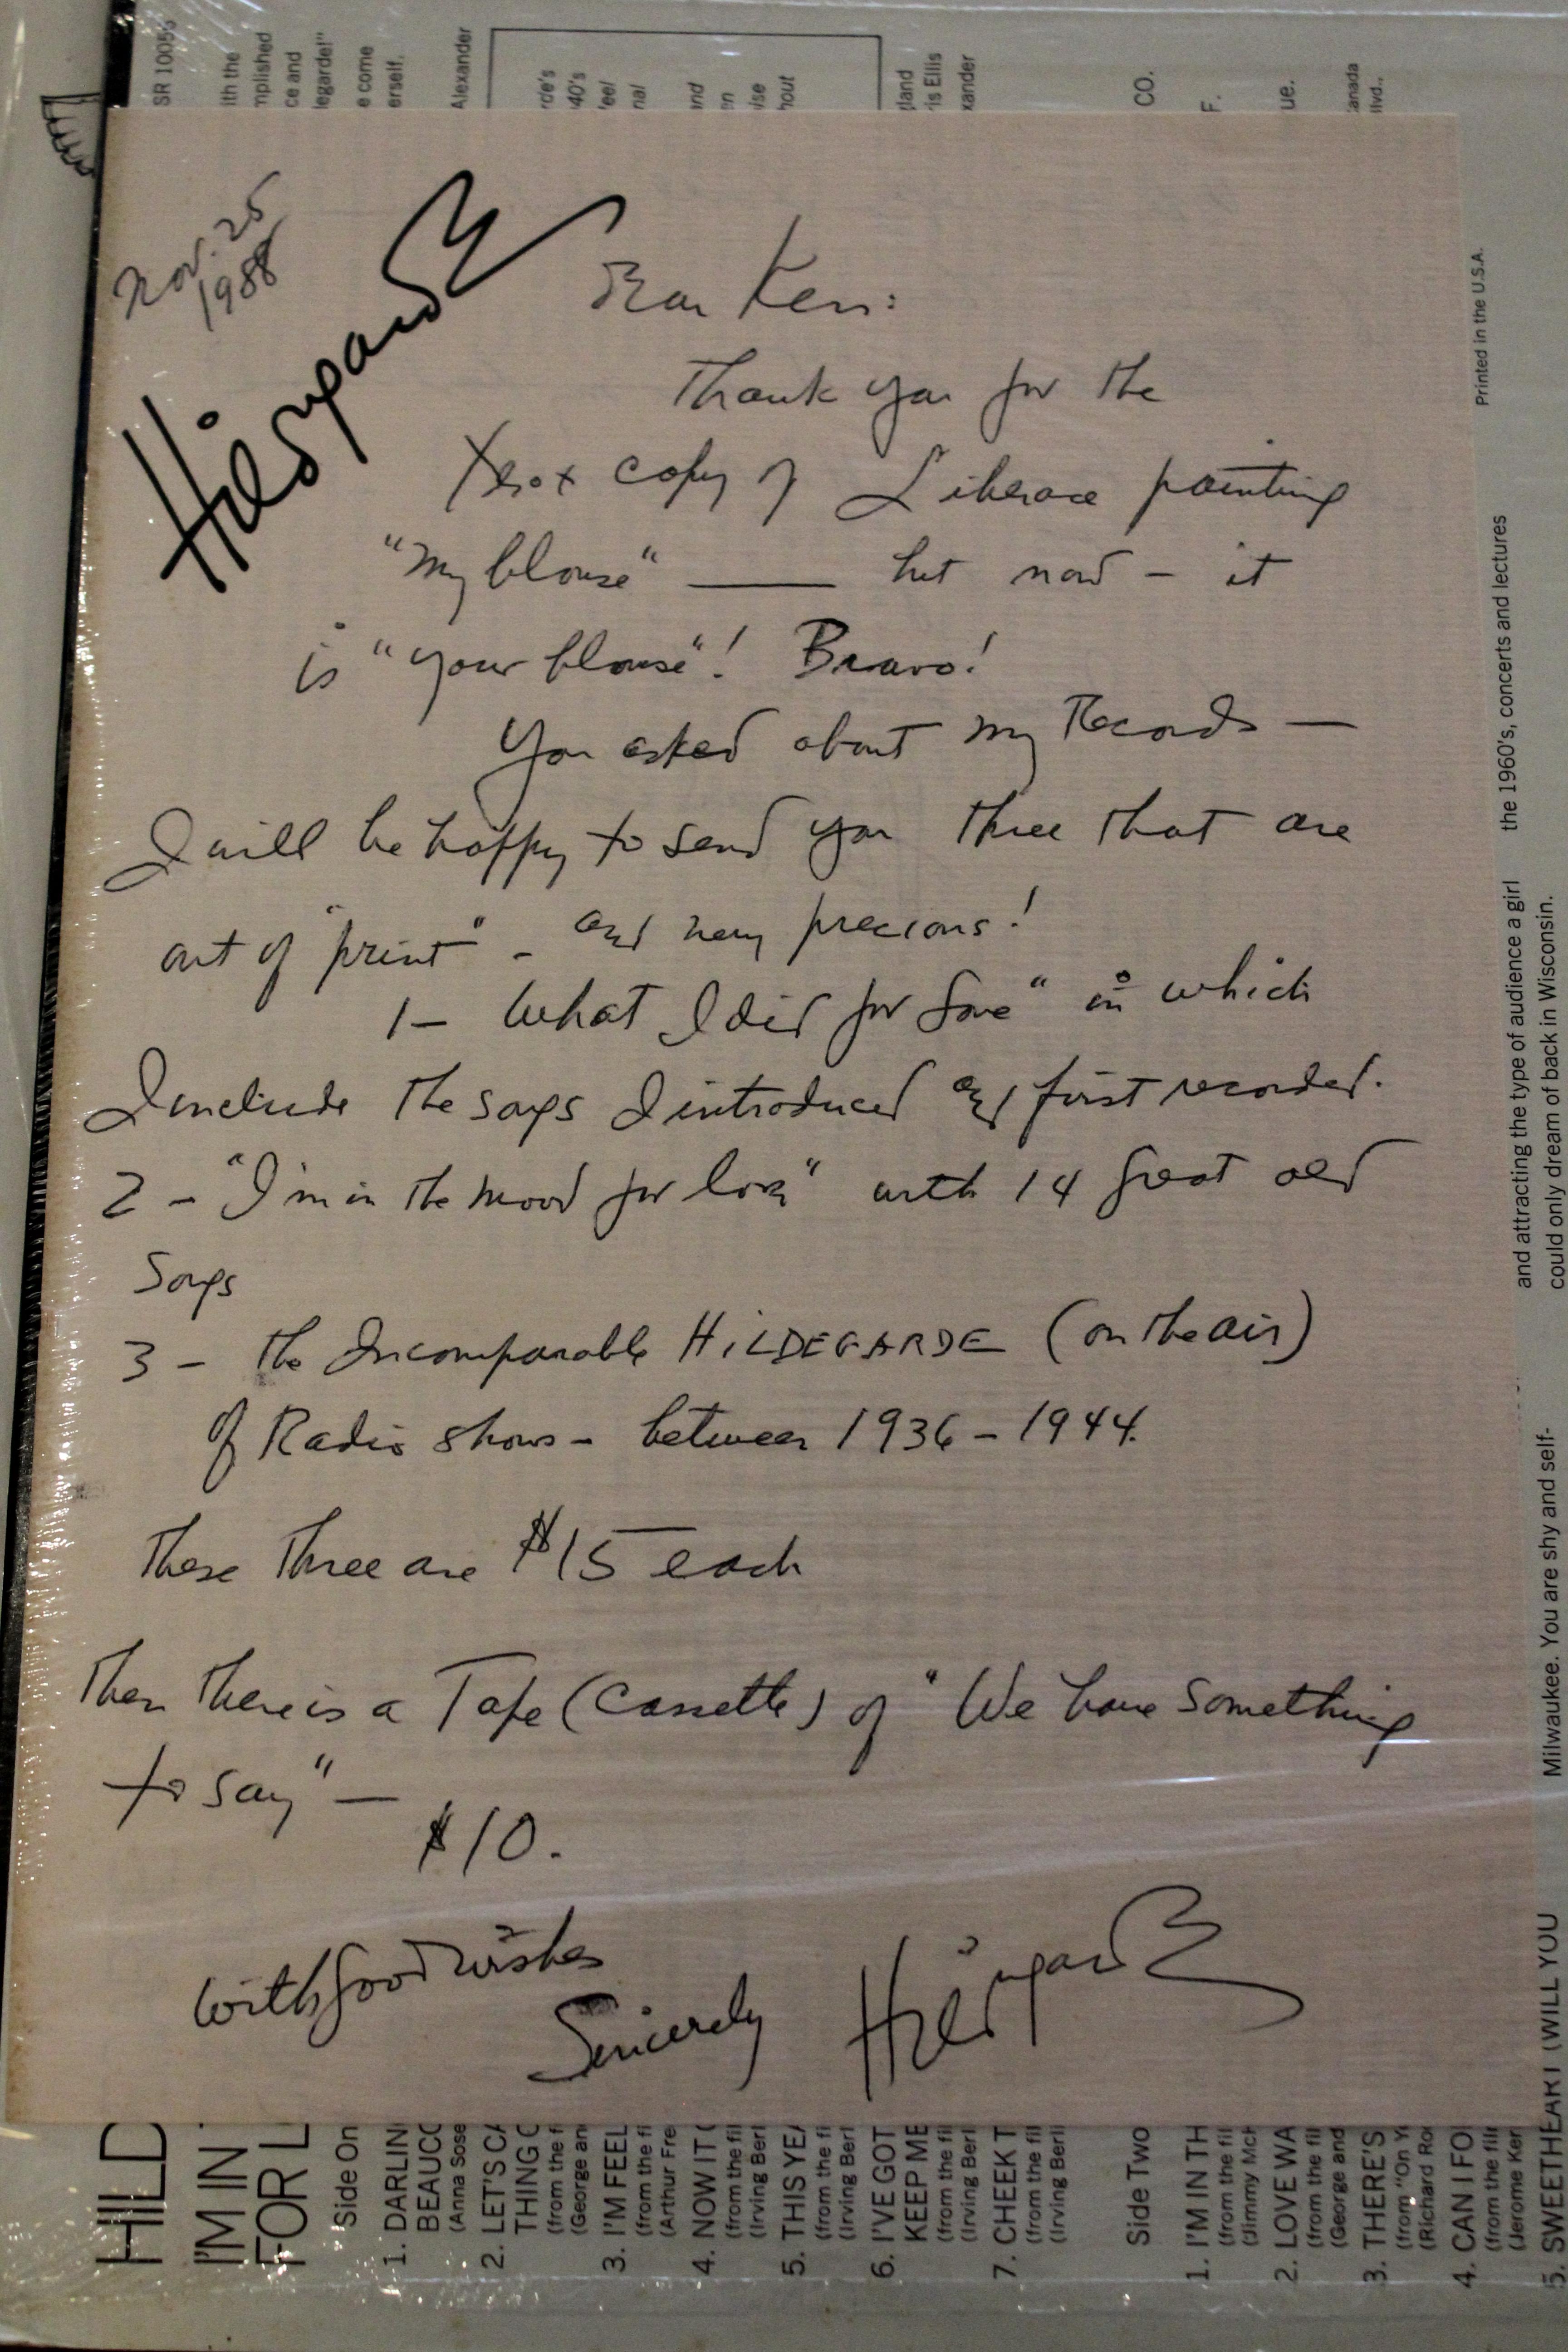 Nov. 25
1988
Hildegarde
Dear Ken:
Thank you for the
Xerox copy of Liberace painting
"My blouse" —— but now - it
is "your blouse"! Bravo!
You asked about my Records —
I will be happy to send you three that are
out of "print" - and very precious!
1- What I did for Love" in which
I include the songs I introduced and first recorded.
2 - "I'm in the mood for love" with 14 great old
Songs
3 - the Incomparable HiLDEGARDE (on the air)
of Radio shows - between 1936 - 1944.
These Three are $15 each
Then there is a Tape (Cassette) of "We have something
to say" —
$10.
With good wishes
Sincerely Hildegarde
SR 10056
ith the
mplished
ce and
legarde!"
e come
erself.
Alexander
rde's
40's
feel
nal
and
en
ise
hout
gland
ris Ellis
xander
CO.
F.
ue.
Canada
llvd..
Printed in the U.S.A.
the 1960's, concerts and lectures
and attracting the type of audience a girl
could only dream of back in Wisconsin.
Milwaukee. You are shy and self-
HILD
I'M IN
FOR L
Side On
1. DARLIN
BEAUCO
(Anna Sose
2. LET'S CA
THING C
(from the f
(George an
3. I'M FEEL
(from the fi
(Arthur Fre
4. NOW IT
(from the fil
(Irving Berl
5. THIS YEA
(from the fi
(Irving Berl
6. I'VE GOT
KEEP ME
(from the fi
(Irving Berl
7. CHEEK T
(from the fi
(Irving Berli
Side Two
1. I'M IN TH
(from the fil
(Jimmy McH
2. LOVE WA
(from the fil
(George and
3. THERE'S
(from "On Y
(Richard Ro
4. CAN I FO
(from the film
(Jerome Ker
5. SWEETHEART (WILL YOU